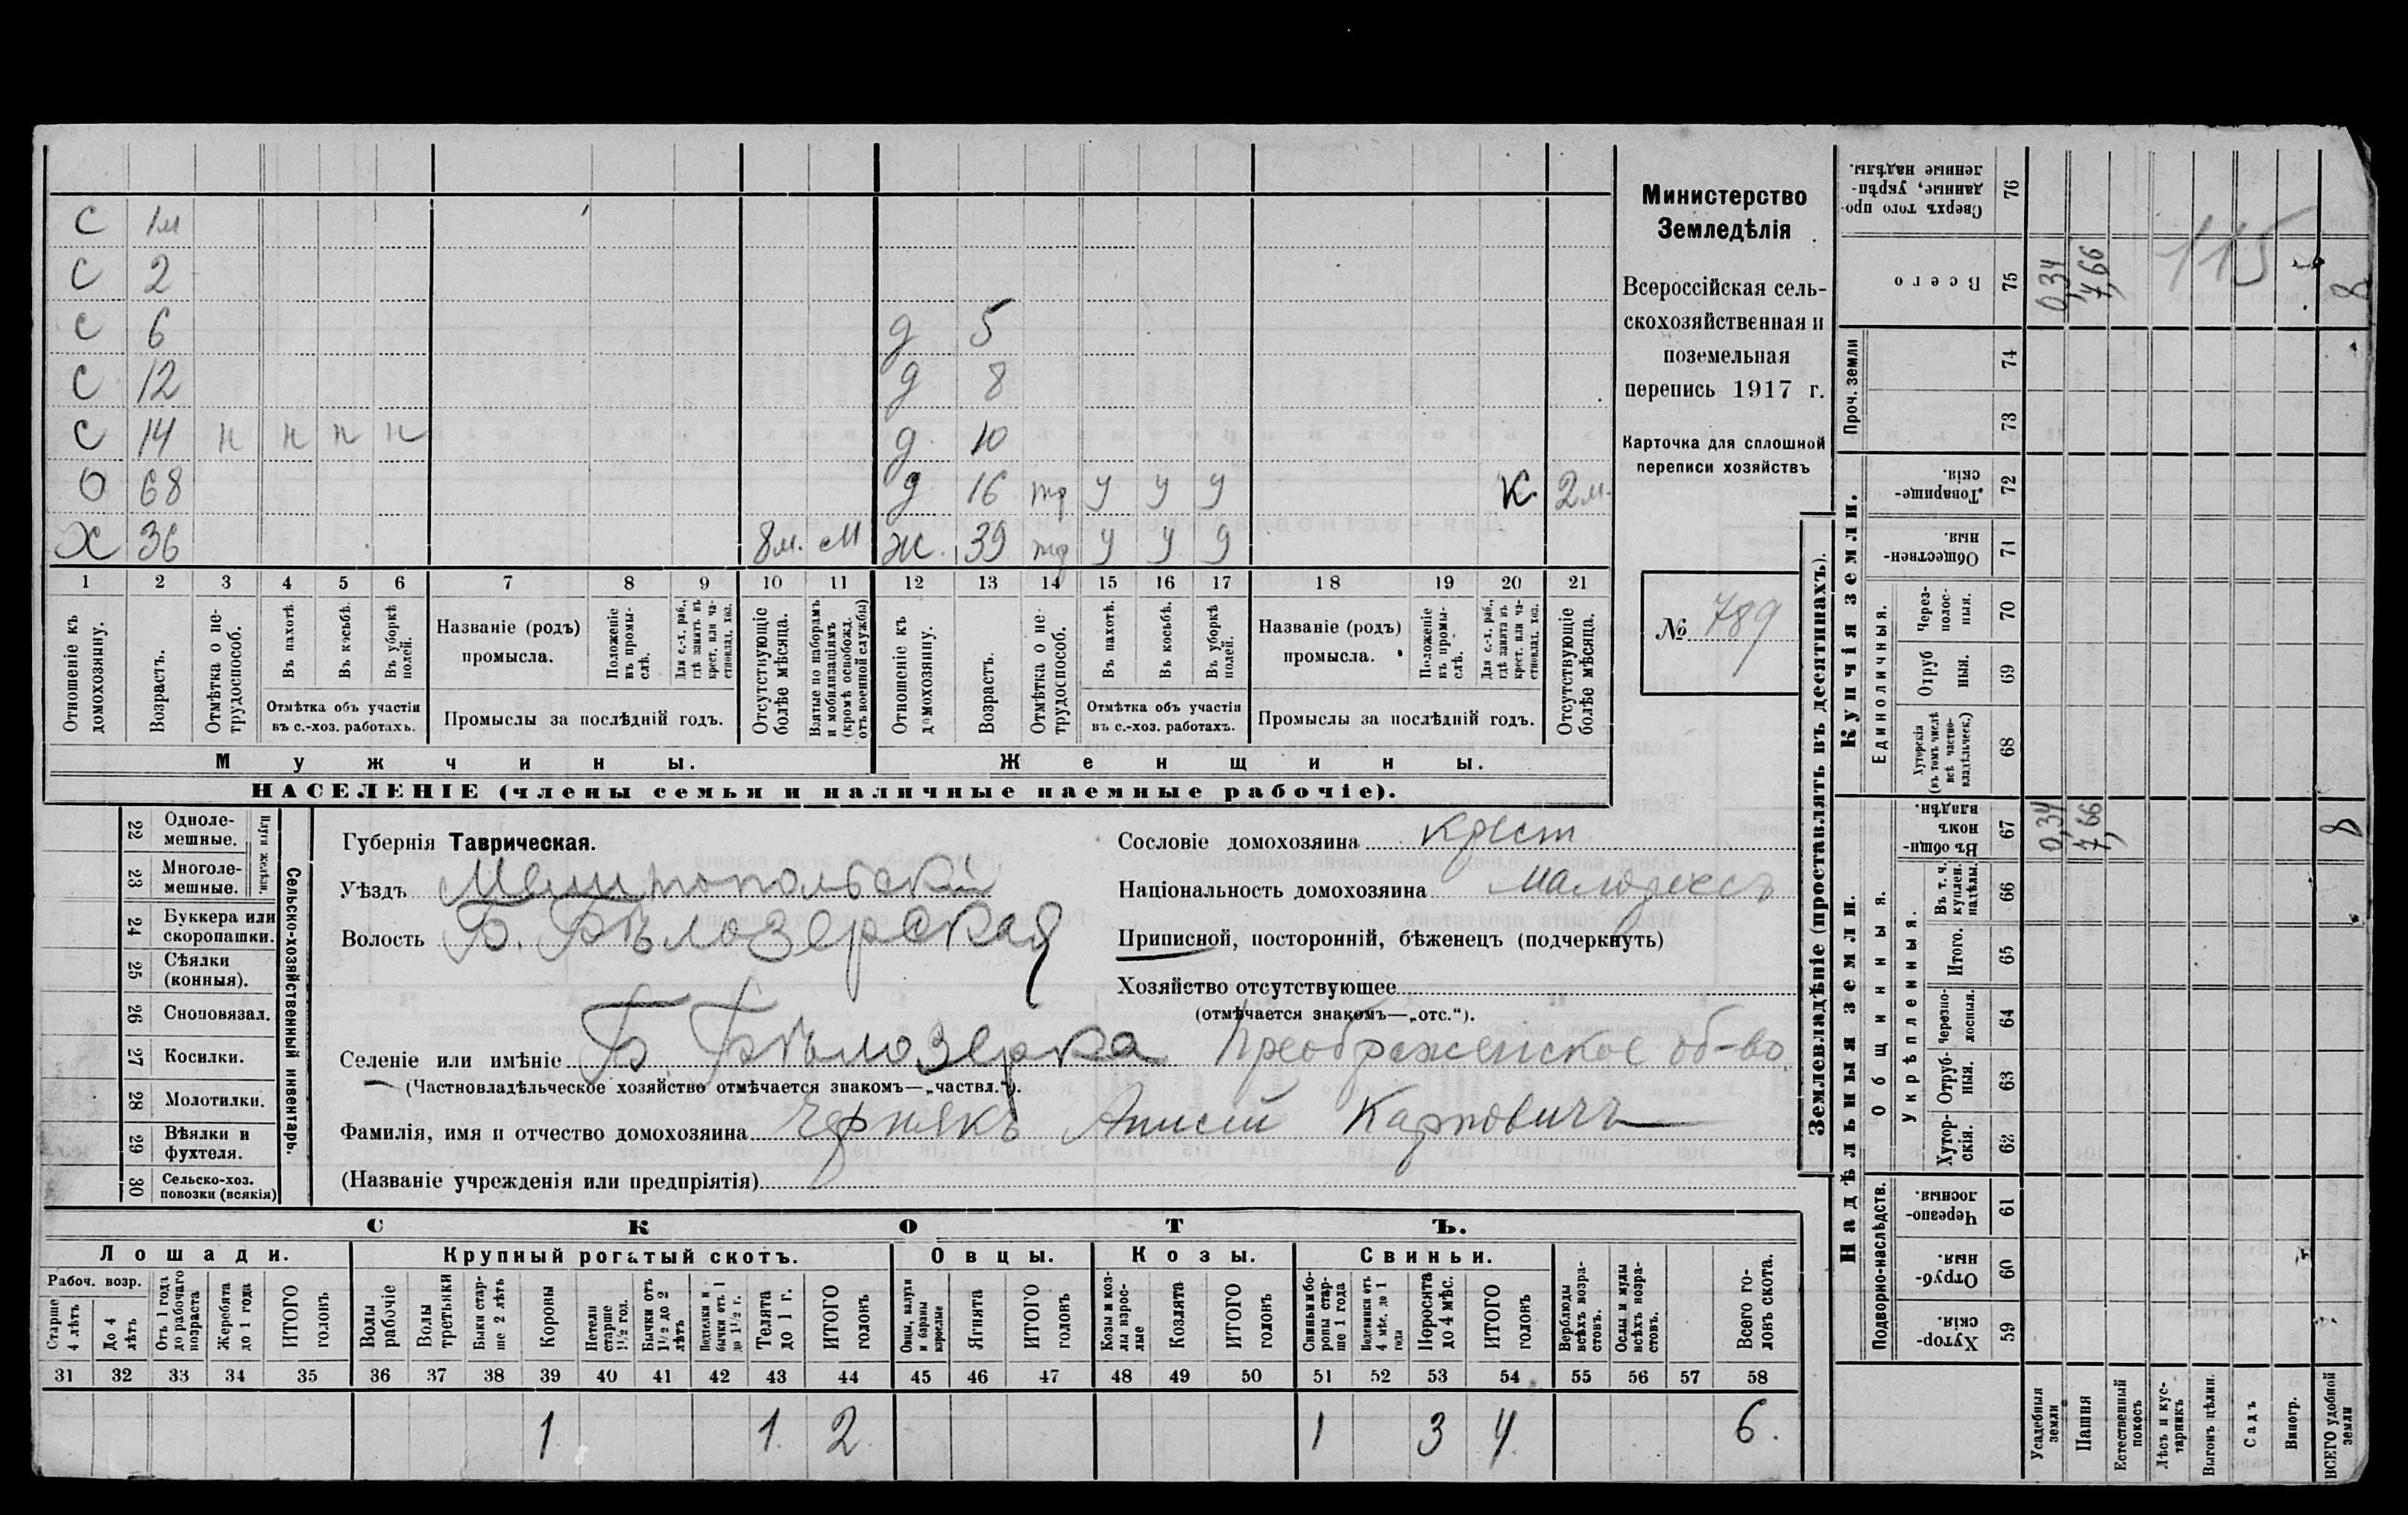 С 1м
С 2
С 6 д 5
С 12 д 8
С 14 н н н н д 10
О 68 д 16 тр у у у К. 2м.
Х 36 8м. М Ж. 39 тр у у у
1 2 3 4 5 6 7 8 9 10 11 12 13 14 15 16 17 18 19 20 21
Отношеніе къ домохозяину.
Возрастъ.
Отмѣтка о нетрудоспособ.
Въ пахотѣ.
Въ косьбѣ.
Въ уборкѣ полей.
Отмѣтка объ участіи
въ с.-хоз. работахъ.
Названіе (родъ)
промысла.
Положеніе въ промыслѣ.
Для с.-х. раб., гдѣ занятъ въ крест. или частновлад. хоз.
Промыслы за послѣдній годъ.
Отсутствующіе болѣе мѣсяца.
Взятые по наборамъ и мобилизаціямъ (кромѣ освобожд. отъ военной службы)
Отношеніе къ домохозяину.
Возрастъ.
Отмѣтка о нетрудоспособ.
Въ пахотѣ.
Въ косьбѣ.
Въ уборкѣ полей.
Отмѣтка объ участіи
въ с.-хоз. работахъ.
Названіе (родъ)
промысла.
Положеніе въ промыслѣ.
Для с.-х. раб., гдѣ занята въ крест. или частновлад. хоз.
Промыслы за послѣдній годъ.
Отсутствующіе болѣе мѣсяца.
Мужчины. Женщины.
НАСЕЛЕНІЕ (члены семьи и наличные наемные рабочіе).
Министерство
Земледѣлія
Всероссійская сель-
скохозяйственная и
поземельная
перепись 1917 г.
Карточка для сплошной
переписи хозяйствъ
№ 789
22 Одноле-
мешные.
23 Многоле-
мешные.
Плуги желѣзн.
24 Буккера или
скоропашки.
25 Сѣялки
(конныя).
26 Сноповязал.
27 Косилки.
28 Молотилки.
29 Вѣялки и
фухтеля.
30 Сельско-хоз.
повозки (всякія)
Сельско-хозяйственный инвентарь.
Губернія Таврическая.
Уѣздъ Мелитопольскій
Волость Б. Бѣлозерская
Селеніе или имѣніе Б. Бѣлозерка Преображенское об-во
(Частновладѣльческое хозяйство отмѣчается знакомъ—„частвл.“).
Фамилія, имя и отчество домохозяина Чернякъ Анисій Карповичъ
(Названіе учрежденія или предпріятія)
Сословіе домохозяина крест
Національность домохозяина малоросс
Приписной, посторонній, бѣженецъ (подчеркнуть)
Хозяйство отсутствующее
(отмѣчается знакомъ—„отс.“).
СКОТЪ.
Лошади. Крупный рогатый скотъ. Овцы. Козы. Свиньи.
Рабоч. возр.
Старше 4 лѣтъ
До 4 лѣтъ
Отъ 1 года до рабочаго возраста
Жеребята до 1 года
ИТОГО головъ
Волы рабочіе
Волы третьяки
Быки старше 2 лѣтъ
Коровы
Нетели старше 1½ год.
Бычки отъ 1½ до 2 лѣтъ
Подтелки и бычки отъ 1 до 1½ г.
Телята до 1 г.
ИТОГО головъ
Овцы, валухи и бараны взрослые
Ягнята
ИТОГО головъ
Козы и козлы взрослые
Козлята
ИТОГО головъ
Свиньи боровы старше 1 года
Подсвинки отъ 4 мѣс. до 1 года
Поросята до 4 мѣс.
ИТОГО головъ
Верблюды всѣхъ возрастовъ.
Ослы и мулы всѣхъ возрастовъ.
Всего головъ скота.
31 32 33 34 35 36 37 38 39 40 41 42 43 44 45 46 47 48 49 50 51 52 53 54 55 56 57 58
1 1. 2 1 3 4 6.
Землевладѣніе (проставлять въ десятинахъ).
Купчія земли.
Надѣльныя земли.
Сверхъ того проданные, укрѣпленные надѣлы. 76
Всего 75 0,34 7,66 8
115
Проч. земли 74
73
Товарищескія. 72
Общественныя. 71
Единоличныя.
Черезполосныя. 70
Отрубныя. 69
Хуторскія (въ томъ числѣ всѣ частновладѣльческ.) 68
Общинныя.
Въ общинномъ владѣн. 67 0,34 7,66 8
Укрѣпленныя.
Въ т. ч. куплен. надѣлы. 66
Итого. 65
Черезполосныя. 64
Отрубныя. 63
Хуторскія. 62
Подворно-наслѣдств.
Черезполосныя. 61
Отрубныя. 60
Хуторскія. 59
Усадебныя земли
Пашня
Естественный покосъ
Лѣсъ и кустарникъ
Выгонъ цѣлин.
Садъ
Виногр.
ВСЕГО удобной земли